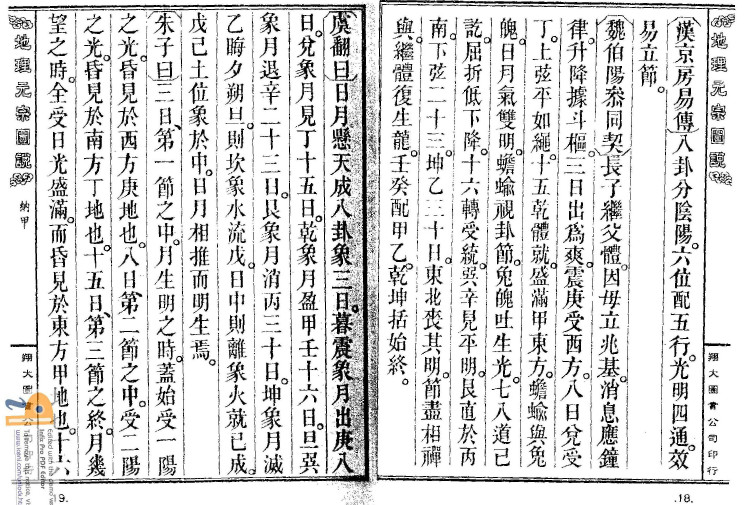 地理元宗圖說
翔大圖書公司印行
.18.
漢京房易傳八卦分陰陽。六位配五行。光明四通。效
易立節。
魏伯陽叅同契長子繼父體。因母立兆基。消息應鐘
律。升降據斗樞。三日出爲爽。震庚受西方。八日兌受
丁。上弦平如繩。十五乾體就。盛滿甲東方。蟾蜍與兔
魄。日月氣雙明。蟾蜍視卦節。兔魄吐生光。七八道已
訖。屈折低下降。十六轉受統。巽辛見平明。艮直於丙
南。下弦二十三。坤乙三十日。東北喪其明。節盡相禪
與。繼體復生龍。壬癸配甲乙。乾坤括始終。
虞翻曰日月懸天成八卦象。三日暮震象月出庚。八
日。兌象月見丁。十五日。乾象月盈甲壬。十六日。旦巽
象月退辛。二十三日。艮象月消丙。三十日。坤象月滅
乙。晦夕朔旦。則坎象水流戊。日中則離象火就己。成
戊己土位。象於中。日月相推而明生焉。
朱子曰三日、第一節之中。月生明之時。蓋始受一陽
之光。昏見於西方庚地也。八日、第二節之中。受二陽
之光。昏見於南方丁地也。十五日、第三節之終。月幾
望之時。全受日光盛滿。而昏見於東方甲地也。十六
地理元宗圖說
納甲
翔大圖書公司印行
.19.